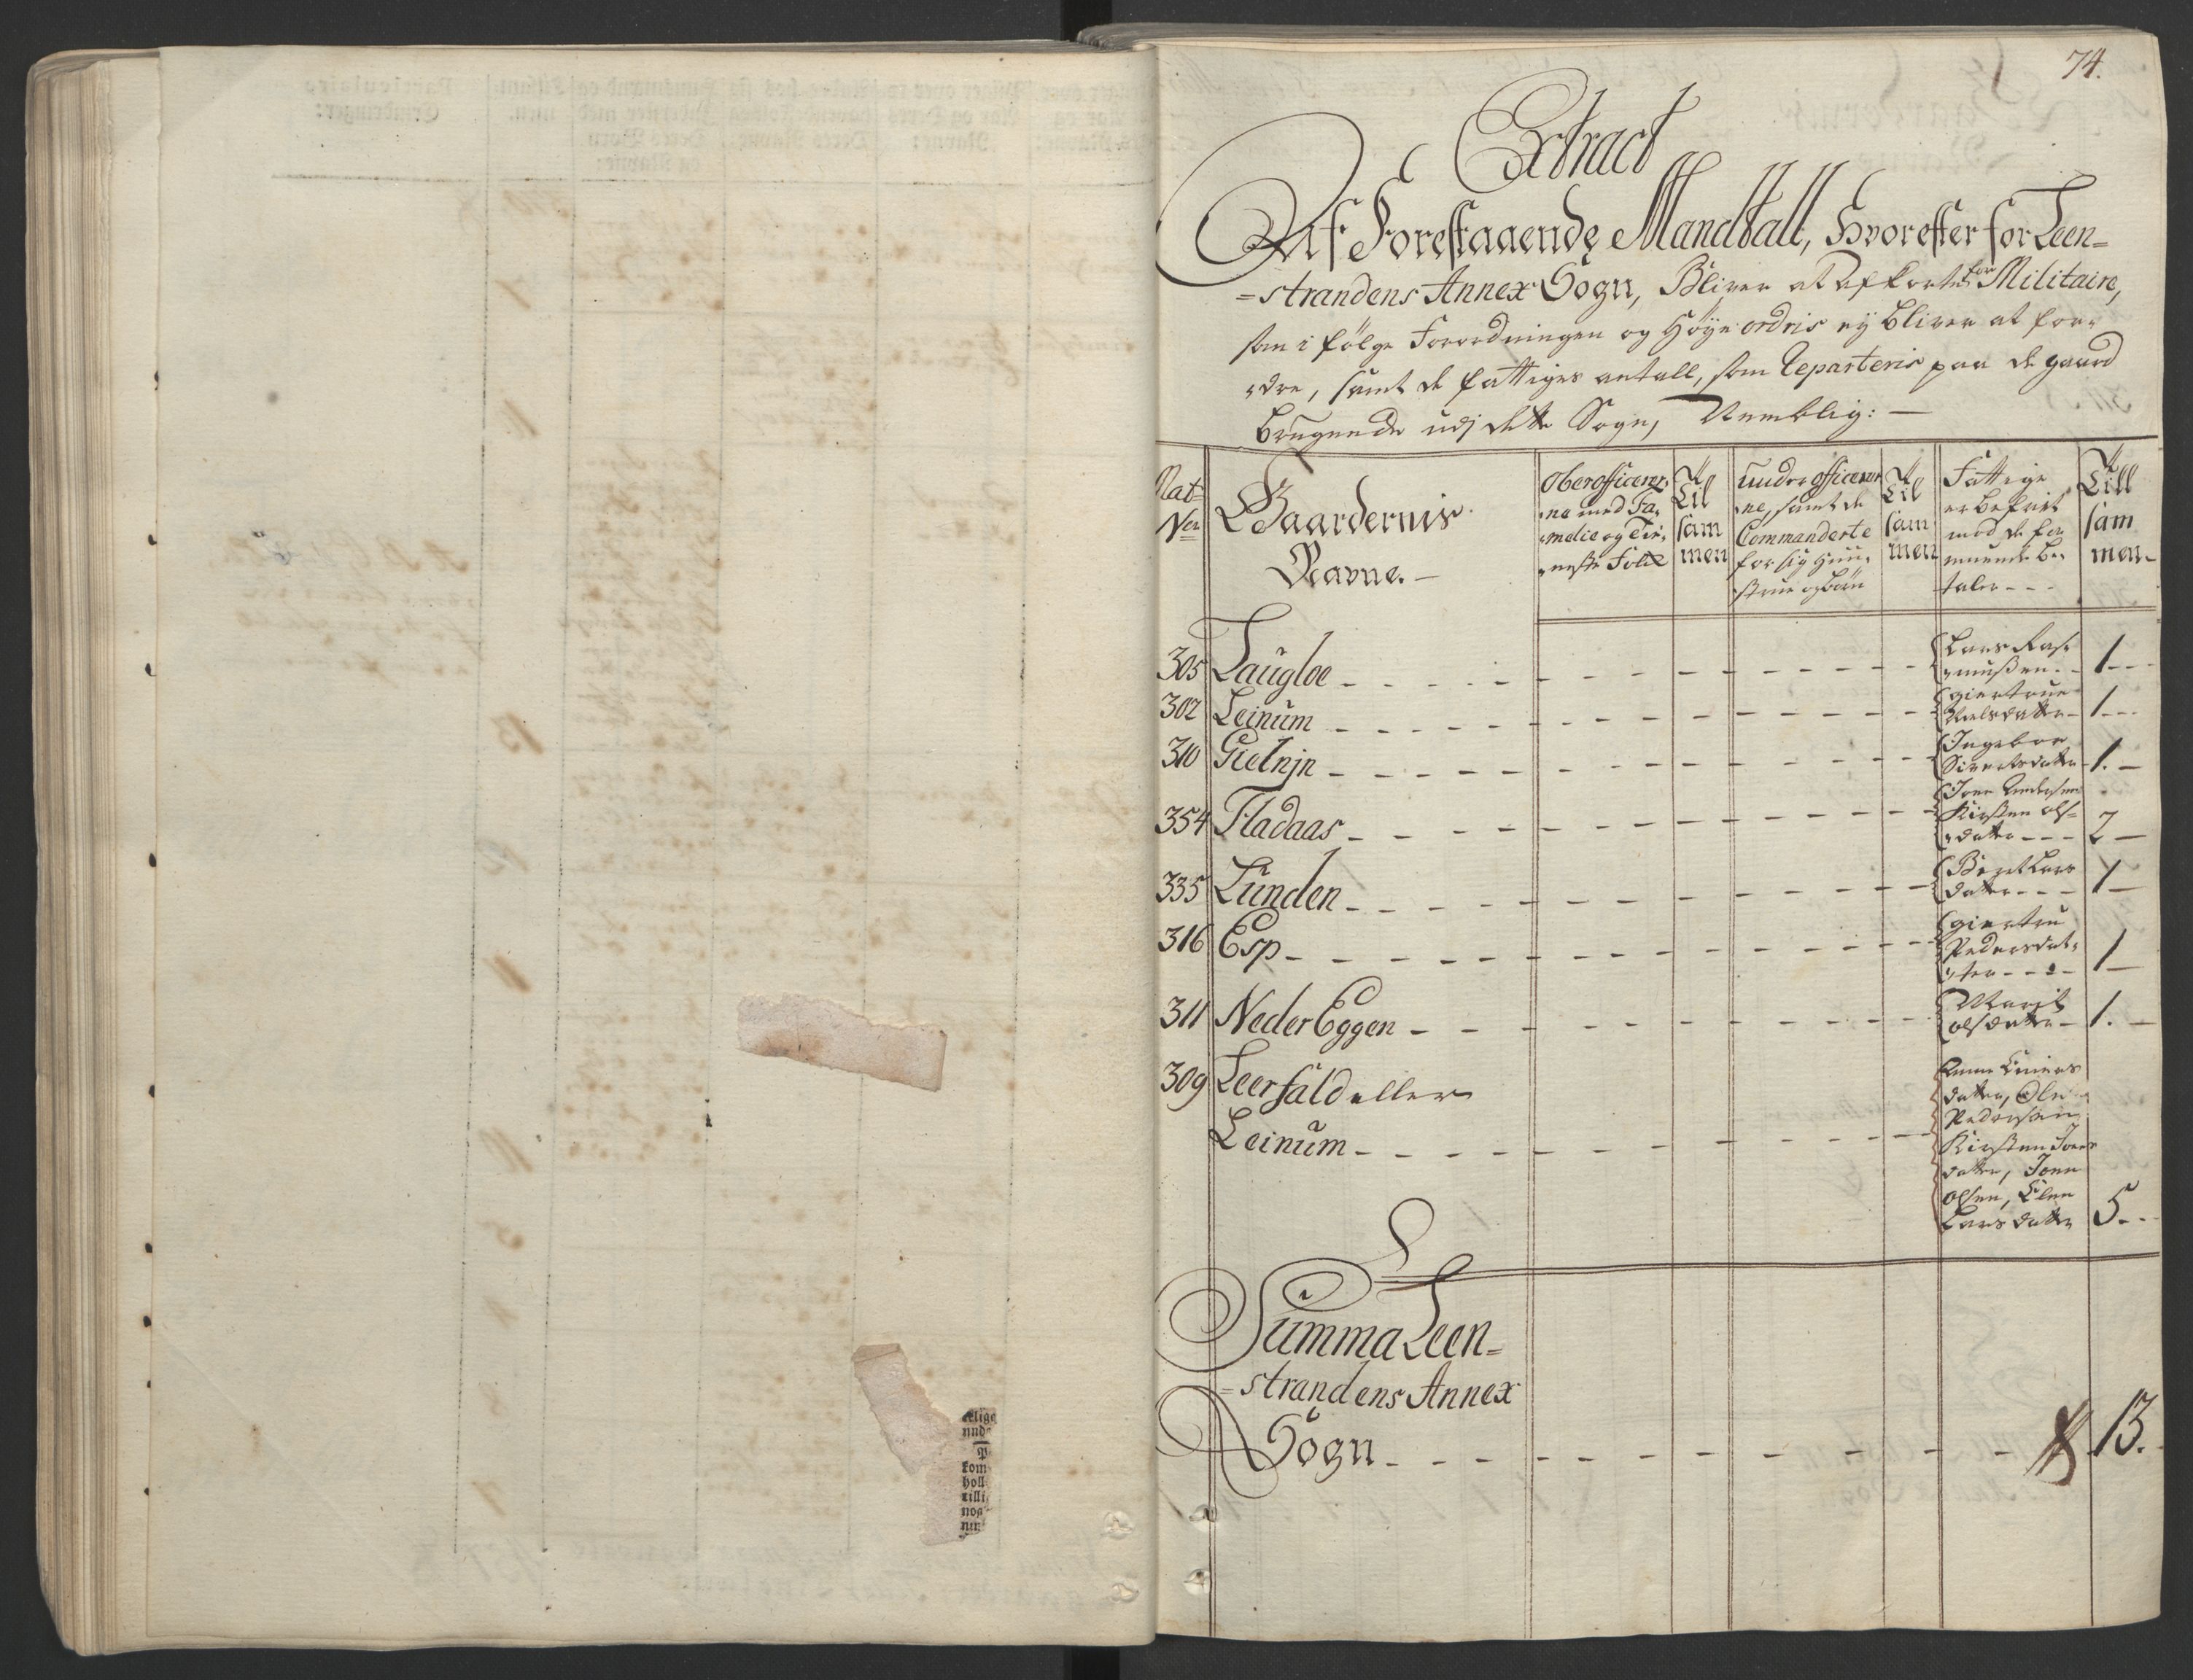 74.
Extract
Af Forestaaende Mandtall, Hvorefter for Leen=
=strandens Annex Sogn, Bliver at afkortes for Militaire,
som i følge Forordningen og Høye ordris ey bliver at for¬
¬dre, samt de fattiges antall, som Reparteris paa de gaard
brugende udj dette Sogn, Nemblig: —
Mat:
Nr:
Gaardernis
Navne. —
Oberofficerer¬
¬ne med Fa¬
¬melie og Tie¬
¬neste Folck
Til
sam
men
Underofficerer
¬ne, samt de
Commanderte
for sig Huu¬
strue og børn
Til
sam
men
Fattige
er befriet
mod de for
muende be¬
taler - - -
Till
sam
men -
305 Laugloe - - - - - Lars Ras¬
¬mußen - - 1 - - -
302 Leinum - - - - - giertrue
Nielsdatter - 1 - - -
310 Gielnjn - - - - - Ingebor
Sivertsdatter - 1. -
354 Fladaas - - - - - Joen Andersen
Kirsten Ols=
¬datter - - - 2 -
335 Lunden - - - - - Berit Lars
datter - - - 1 -
316 Esp - - - - - giertru
Pedersdat¬
¬ter - - - 1 -
311 Neder Eggen - - - Marit
olsdatter - 1. -
309 Leersald eller
Leinum - - - - -
datter, Ole
Pedersen
Kirsten Joens
datter, Joen
olsen, Elen
Larsdatter 5. - -
Summa Leen=
=strandens Annex
Sogn - - - - - 13.